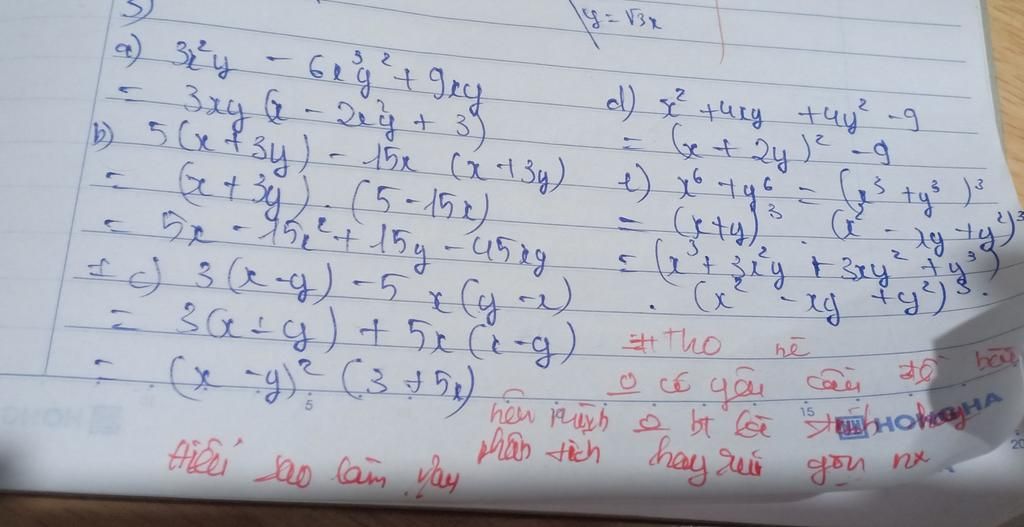 3)
y = √3x
a) 3x²y - 6x³y² + 9xy
= 3xy (x - 2x²y + 3)
b) 5(x + 3y) - 15x (x + 3y)
= (x + 3y) . (5 - 15x)
= 5x - 15x² + 15y - 45xy
c) 3(x - y) - 5x(y - x)
= 3(x - y) + 5x(x - y)
= (x - y)² (3 + 5x)
d) x² + 4xy + 4y² - 9
= (x + 2y)² - 9
e) x⁶ + y⁶ = (x³ + y³)³
= (x+y)³ . (x² - xy + y²)³
= (x³ + 3x²y + 3xy² + y³)
. (x² - xy + y²)³.
Tho nè
có yêu cầu đề bài
nên mình bt là hay
phân tích hay rút gọn nx
sao làm vậy
15 HONG HA
5
20